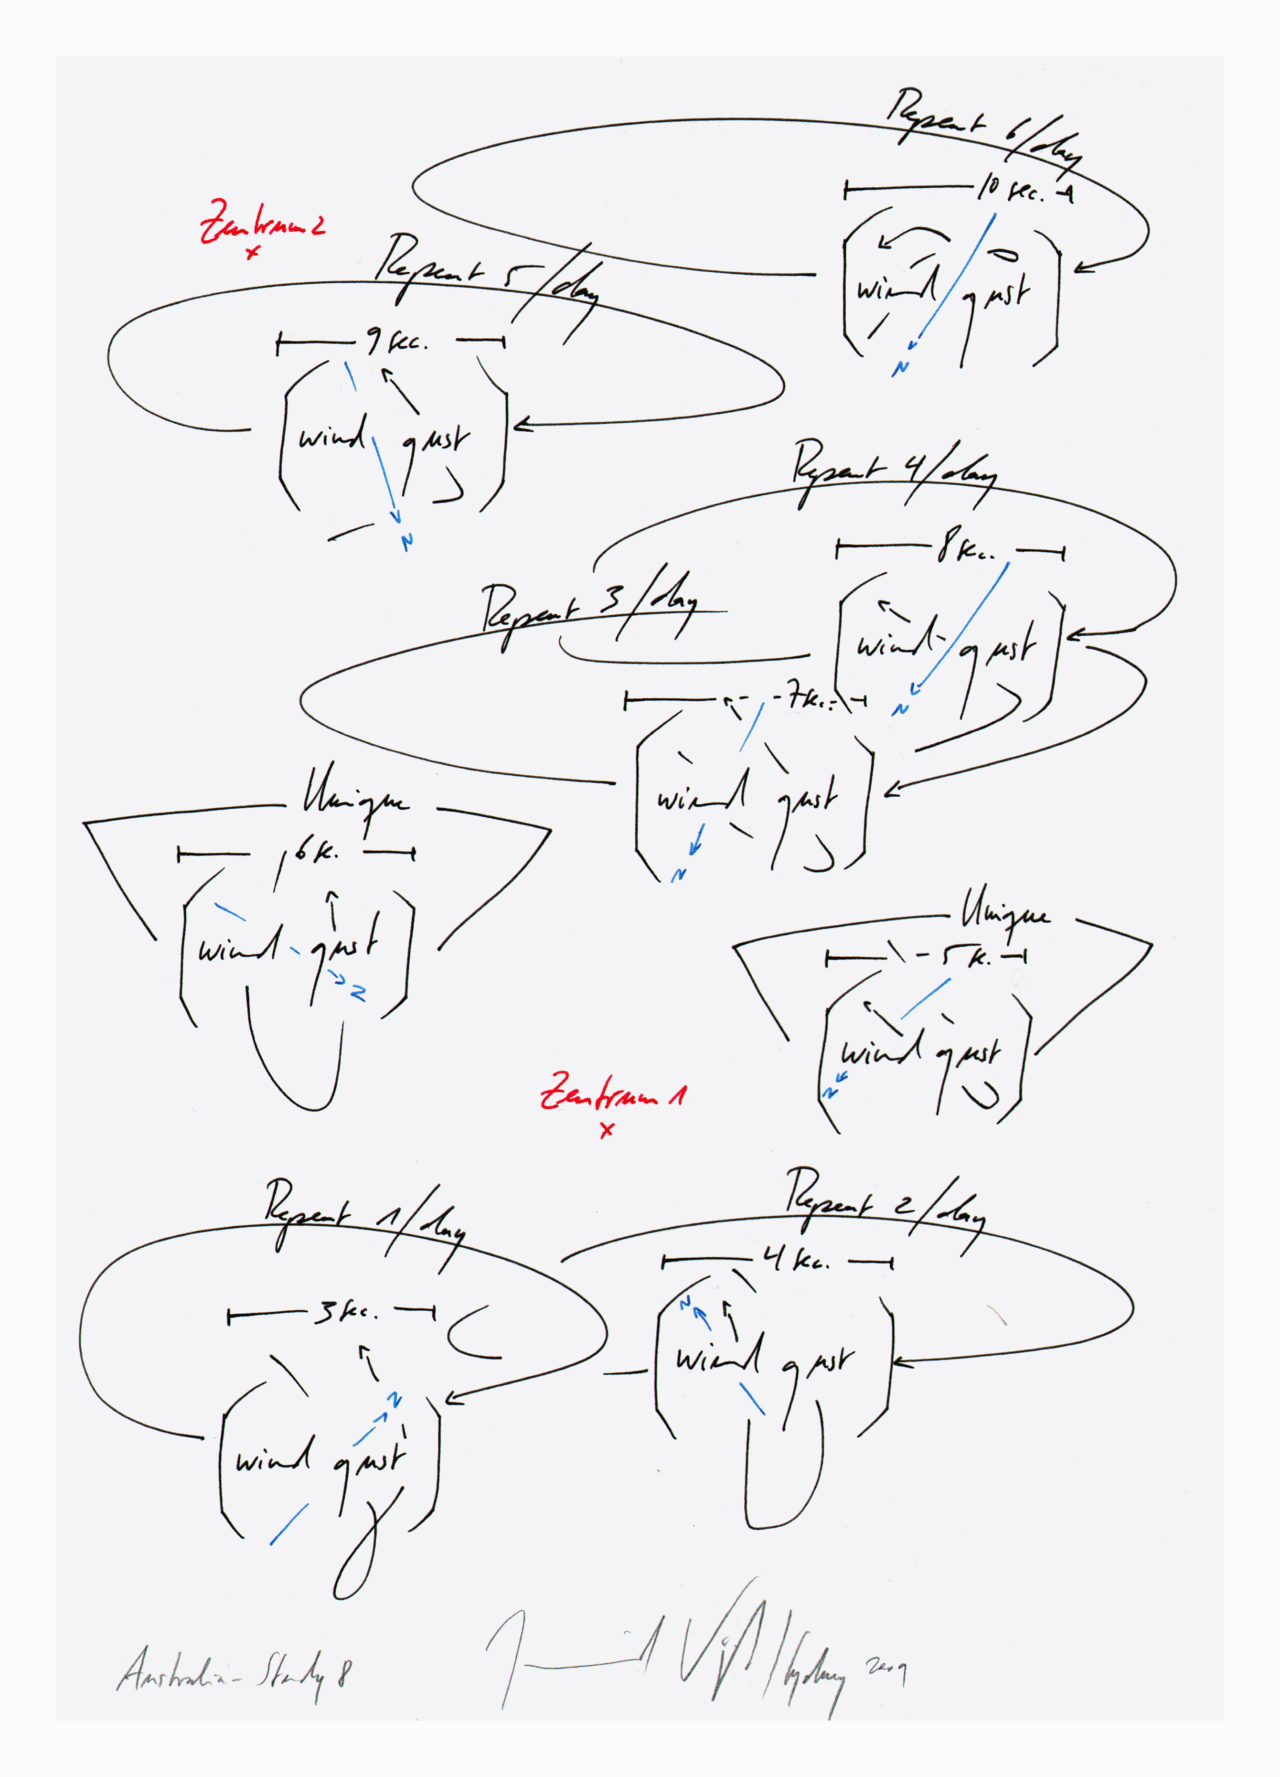 Repeat 6/day
10 sec.
wind gust
N
Zentrum 2
x
Repeat 5/day
9 sec.
wind gust
N
Repeat 4/day
8 sec.
wind gust
N
Repeat 3/day
7 sec.
wind gust
N
Unique
6 sec.
wind gust
N
Unique
5 sec.
wind gust
N
Zentrum 1
x
Repeat 1/day
3 sec.
N
wind gust
Repeat 2/day
4 sec.
N
wind gust
Australia-Study 8
/Sydney 2009